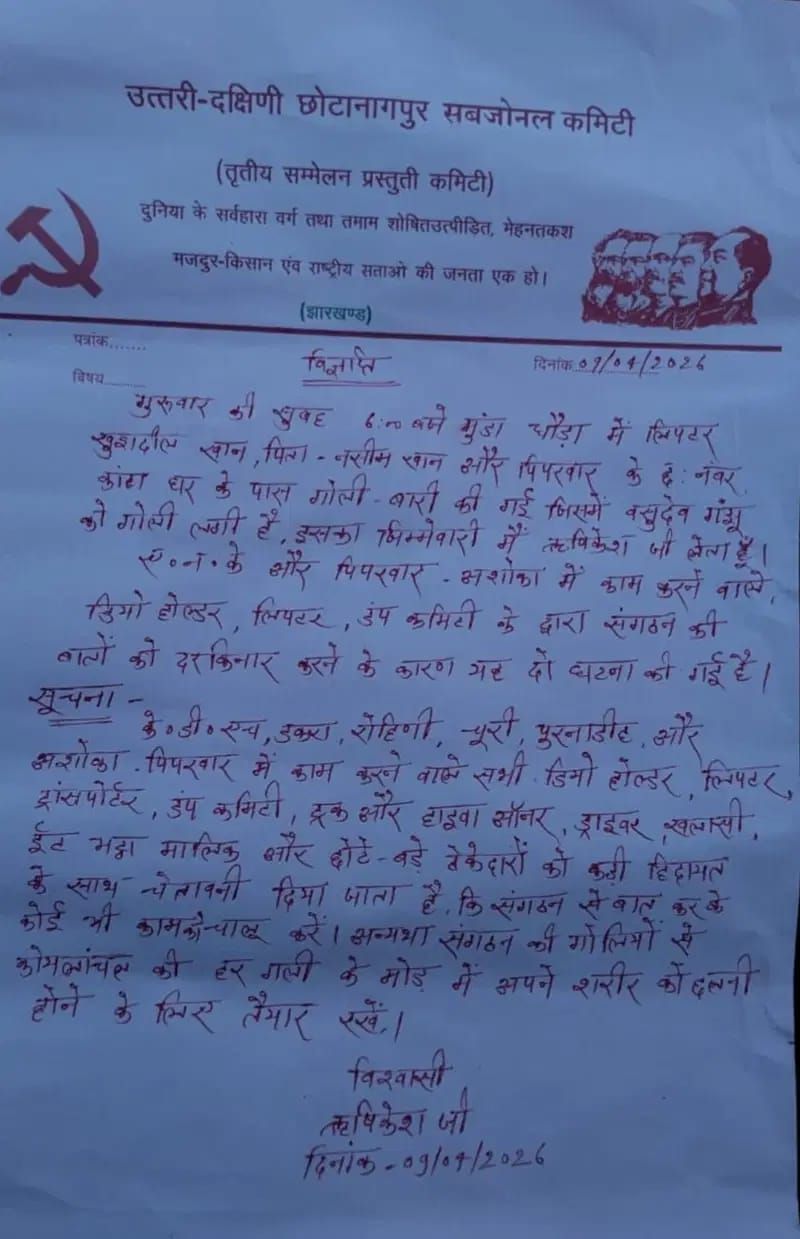 उत्तरी-दक्षिणी छोटानागपुर सबजोनल कमिटी
(तृतीय सम्मेलन प्रस्तुती कमिटी)
दुनिया के सर्वहारा वर्ग तथा तमाम शोषितउत्पीड़ित, मेहनतकश
मजदुर-किसान एंव राष्ट्रीय सताओ की जनता एक हो।
(झारखण्ड)
पत्रांक.......
विज्ञप्ति
दिनांक 09/04/2026
विषय.......
गुरूवार की सुबह 6:00 बजे मुंडा चौड़ा में लिफ्टर
खुशदील खान, पिता - नसीम खान और पिपरवार के 6: नंबर
कांटा घर के पास गोली-बारी की गई जिसमें वसुदेव गंझू
को गोली लगी है, इसका जिम्मेवारी मैं ऋषिकेश जी लेता हूँ।
के और पिपरवार - अशोका में काम करने वाले,
डियो होल्डर, लिफ्टर, डंप कमिटी के द्वारा संगठन की
बातों को दरकिनार करने के कारण यह दो घटना की गई है।
सूचना -
के॰डी॰एच, डकरा, रोहिणी, चूरी, पुरनाडीह, और
अशोका - पिपरवार में काम करने वाले सभी डियो होल्डर, लिफ्टर,
ट्रांसपोर्टर, डंप कमिटी, ट्रक और हाइवा ऑनर, ड्राइवर, खलासी,
ईट भट्ठा मालिक और छोटे-बड़े ठेकेदारों को कड़ी हिदायत
के साथ चेतावनी दिया जाता है, कि संगठन से बात कर के
कोई भी काम को चालू करें। अन्यथा संगठन की गोलियों से
कोयलांचल की हर गली के मोड़ में अपने शरीर को छलनी
होने के लिए तैयार रखें।
विश्वासी
ऋषिकेश जी
दिनांक - 09/04/2026